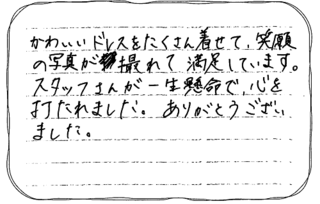 かわいいドレスをたくさん着せて、笑顔
の写真が撮れて満足しています。
スタッフさんが一生懸命で、心を
打たれました。ありがとうござい
ました。